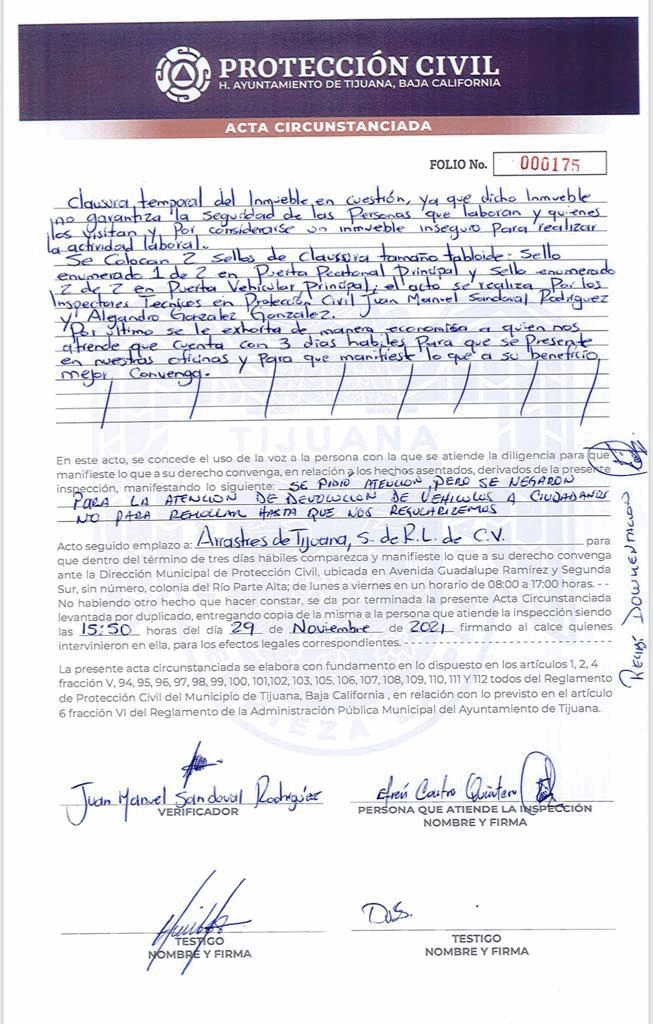 PROTECCIÓN CIVIL
H. AYUNTAMIENTO DE TIJUANA, BAJA CALIFORNIA
ACTA CIRCUNSTANCIADA
FOLIO No. 000175
Clausura temporal del Inmueble en cuestión, ya que dicho Inmueble
no garantiza la seguridad de las Personas que laboran y quienes
los visitan y Por considerarse un inmueble inseguro Para realizar
la actividad laboral.
Se Colocan 2 sellos de Clausura tamaño tabloide: Sello
enumerado 1 de 2 en Puerta Peatonal Principal y Sello enumerado
2 de 2 en Puerta Vehicular Principal, el acto se realiza Por los
Inspectores Tecnicos en Protección Civil Juan Manuel Sandoval Rodriguez
y Alejandro Gonzalez Gonzalez.
Por ultimo se le exhorta de manera economica a quien nos
atiende que cuenta con 3 dias habiles Para que se Presente
en nuestras oficinas y Para que manifieste lo que a su beneficio
mejor Convenga.
TIJUANA
En este acto, se concede el uso de la voz a la persona con la que se atiende la diligencia para que
manifieste lo que a su derecho convenga, en relación a los hechos asentados, derivados de la presente
inspección, manifestando lo siguiente: SE PIDIO ATENCION, PERO SE NEGARON
PARA LA ATENCION DE DEVOLUCION DE VEHICULOS A CIUDADANOS
NO PARA REMOLCAR HASTA QUE NOS REGULARIZEMOS
Acto seguido emplazo a: Arrastres de Tijuana, S. de R.L. de C.V. para
que dentro del término de tres días hábiles comparezca y manifieste lo que a su derecho convenga
ante la Dirección Municipal de Protección Civil, ubicada en Avenida Guadalupe Ramírez y Segunda
Sur, sin número, colonia del Río Parte Alta; de lunes a viernes en un horario de 08:00 a 17:00 horas. - -
No habiendo otro hecho que hacer constar, se da por terminada la presente Acta Circunstanciada
levantada por duplicado, entregando copia de la misma a la persona que atiende la inspección siendo
las 15:50 horas del día 29 de Noviembre de 2021 firmando al calce quienes
intervinieron en ella, para los efectos legales correspondientes. - - - - - - - - - - - - - - - - - - - - - - - -
La presente acta circunstanciada se elabora con fundamento en lo dispuesto en los artículos 1, 2, 4
fracción V, 94, 95, 96, 97, 98, 99, 100, 101,102, 103, 105, 106, 107, 108, 109, 110, 111 Y 112 todos del Reglamento
de Protección Civil del Municipio de Tijuana, Baja California , en relación con lo previsto en el artículo
6 fracción VI del Reglamento de la Administración Pública Municipal del Ayuntamiento de Tijuana.
RECIBI DOCUMENTACION
Juan Manuel Sandoval Rodriguez
VERIFICADOR
Efren Castro Quintero
PERSONA QUE ATIENDE LA INSPECCIÓN
NOMBRE Y FIRMA
TESTIGO
NOMBRE Y FIRMA
TESTIGO
NOMBRE Y FIRMA